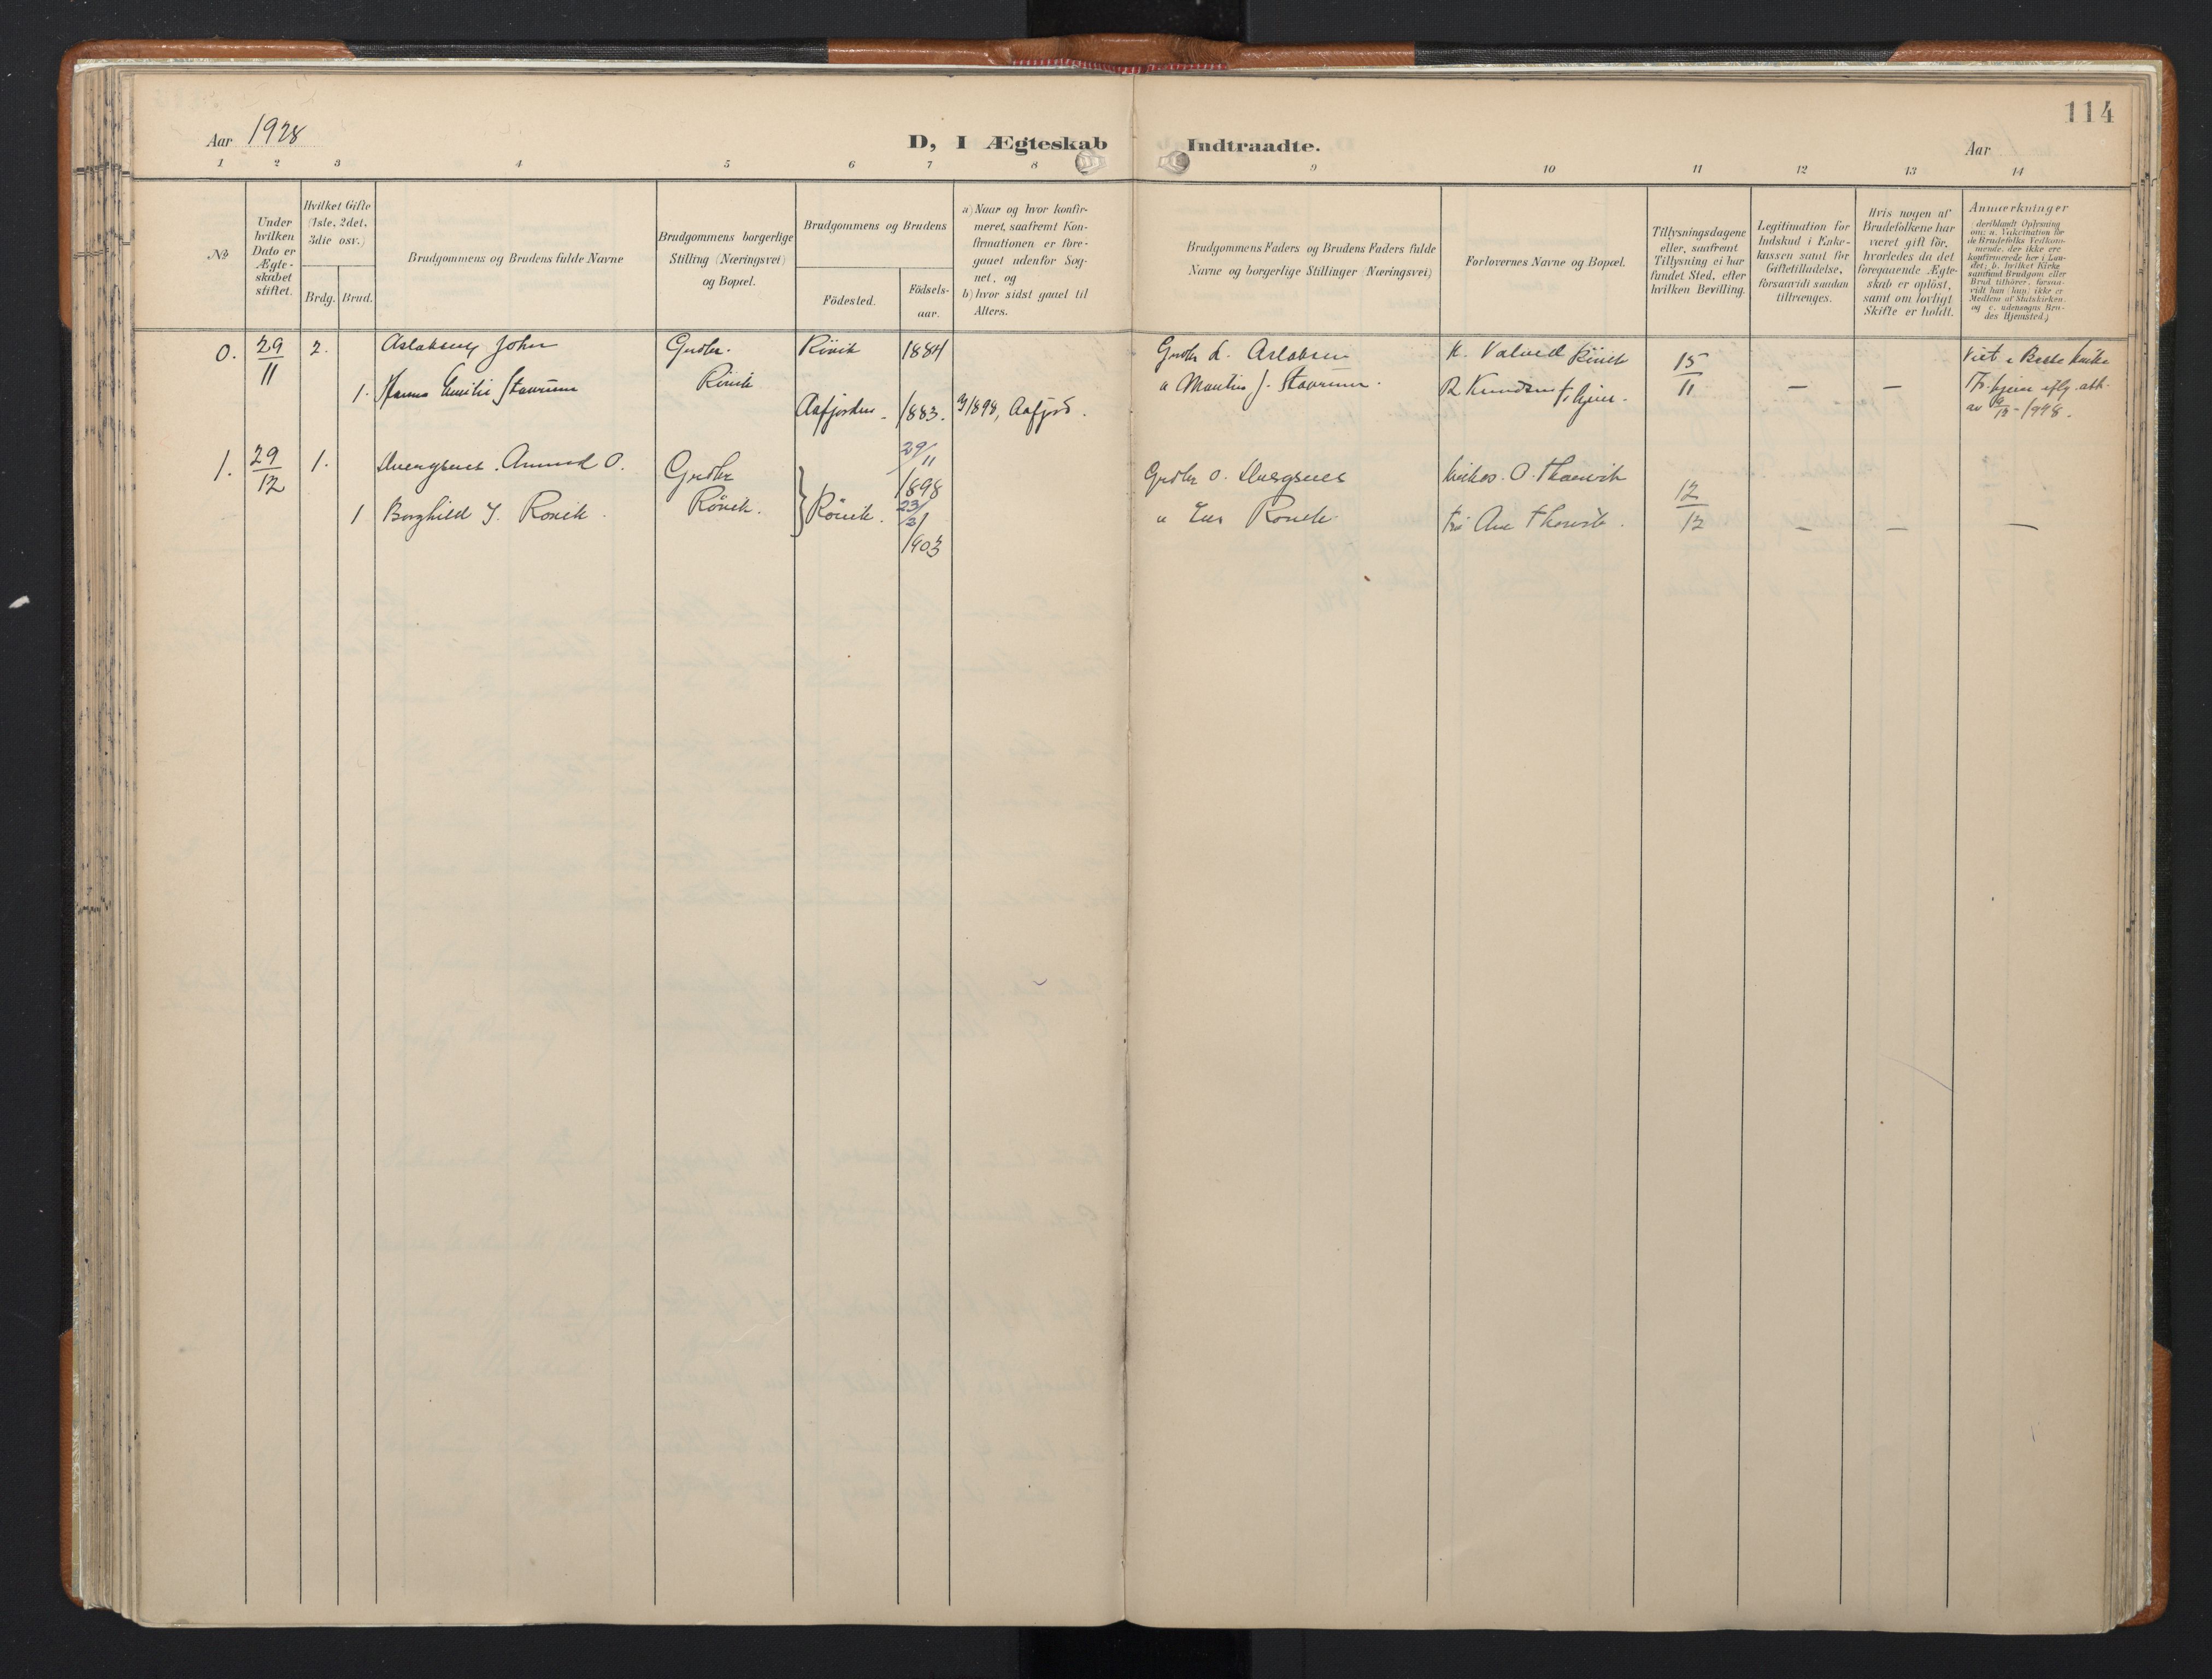 114
Aar 1928
D, I Ægteskab Indtraadte.
Aar
1 2 3 4 5 6 7 8 9 10 11 12 13 14
No
Under hvilken Dato er Ægte-skabet stiftet.
Hvilket Gifte (1ste, 2det, 3die osv.)
Brdg. Brud.
Brudgommens og Brudens fulde Navne
Brudgommens borgerlige Stilling (Næringsvei) og Bopæl.
Brudgommens og Brudens
Födested.
Födsels-aar.
a) Naar og hvor konfir-
meret, saafremt Kon-
firmationen er fore-
gaaet udenfor Sog-
net, og
b) hvor sidst gaaet til
Alters.
Brudgommens Faders og Brudens Faders fulde
Navne og borgerlige Stillinger (Næringsvei)
Forlovernes Navne og Bopæl.
Tillysningsdagene
eller, saafremt
Tillysning ei har
fundet Sted, efter
hvilken Bevilling.
Legitimation for
Indskud i Enke-
kassen samt for
Giftetilladelse,
forsaavidt saadan
tiltrænges.
Hvis nogen af
Brudefolkene har
været gift för,
hvorledes da det
foregaaende Ægte-
skab er oplöst,
samt om lovligt
Skifte er holdt.
Anmærkninger
deriblandt Oplysning
om: a. Vakcination for
de Brudefolks Vedkom-
mende, der ikke ere
konfirmerede her i Lan-
det; b. hvilket Kirke
samfund Brudgom eller
Brud tilhörer, forsaa-
vidt han (hun) ikke er
Medlem af Statskirken,
og c. udensogns Bru-
des Hjemsted.)
0. 29/11 2. Aslaksen John Grdbr. Rönik 1884
Grdbr L. Aslaksen K. Valved Rönik 15/11
1. Emilie Stavrum Rönik Aafjorden. 1883. 1898, Aafjord.
" J. Stavrum. R Knudsen — —
Viet i Kirke
av 1928.
1. 29/12 1. Amund O. Grdbr 29/11 1898
Grdbr O. O. 12/12
1 Borghild J. Rönik. Rönik. } Rönik. 23/2/ 1903
" Rönik. — — —